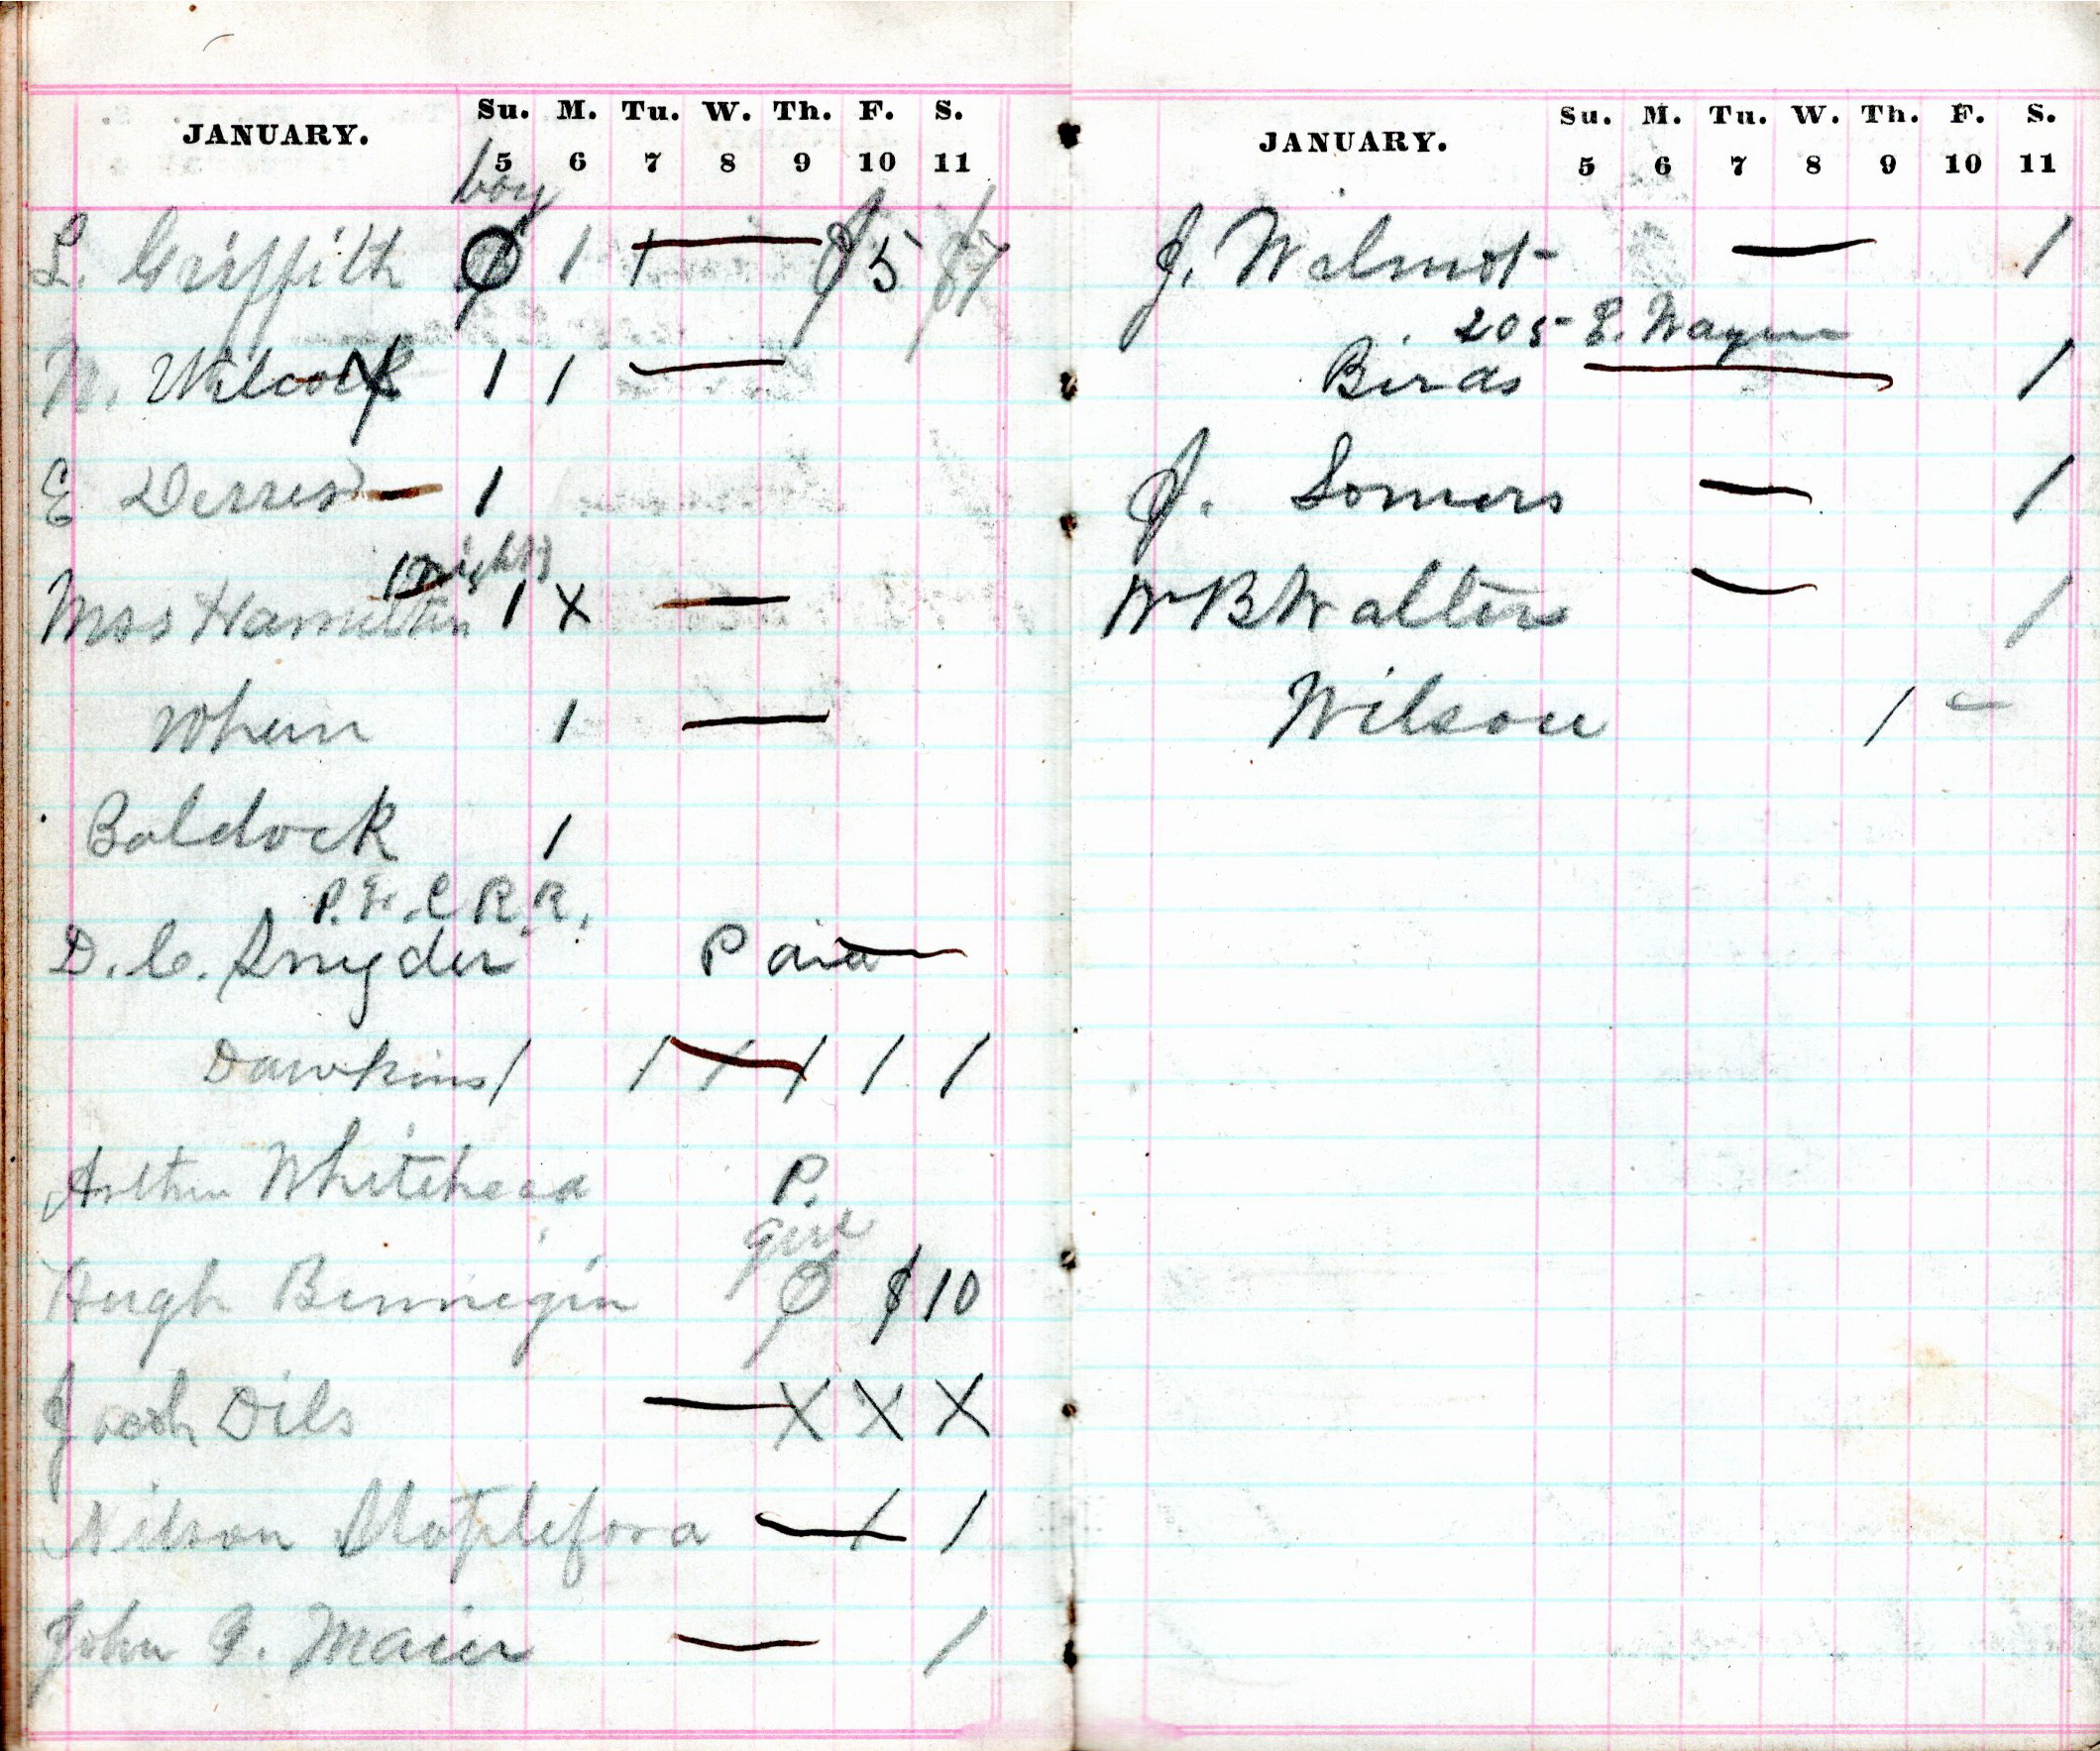 JANUARY. Su. M. Tu. W. Th. F. S.
5 6 7 8 9 10 11
boy
L. Griffith 1 1 $5 $7
N. Wilcox 1 1
E 1
1 night
Mrs Hamilton 1 X
Whern 1
Baldock 1
P. Ft. C. R. R.
D. C. Snyder Paid
Dawkins 1 1 1 1 1 1
Arthur Whitehead P.
girl
Hugh Binnigin $10
Joch Dils X X X
Nilson Stopleford 1 1
John G. Maier 1
JANUARY. Su. M. Tu. W. Th. F. S.
5 6 7 8 9 10 11
J. Wilmot 1
205 E. Wayne
Birds 1
J. Somers 1
W B Walters 1
Wilson 1